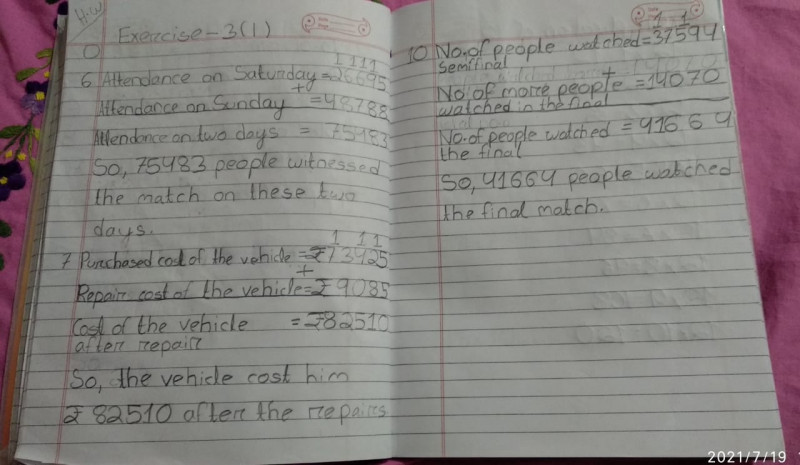 H.W
Exercise-3(1)
1 1 1 1
6 Attendance on Saturday = 26695
+
Attendance on Sunday = 48788
Attendance on two days = 75483
So, 75483 people witnessed
the match on these two
days.
1 1 1
7 Purchased cost of the vehicle = ₹73425
+
Repair cost of the vehicle = ₹9085
Cost of the vehicle = ₹82510
after repair
So, the vehicle cost him
₹ 82510 after the repairs
1 1
10 No. of people watched = 37594
Semifinal
+
No. of more people = 14070
watched in the final
No. of people watched = 41664
the final
So, 41664 people watched
the final match.
2021/7/19